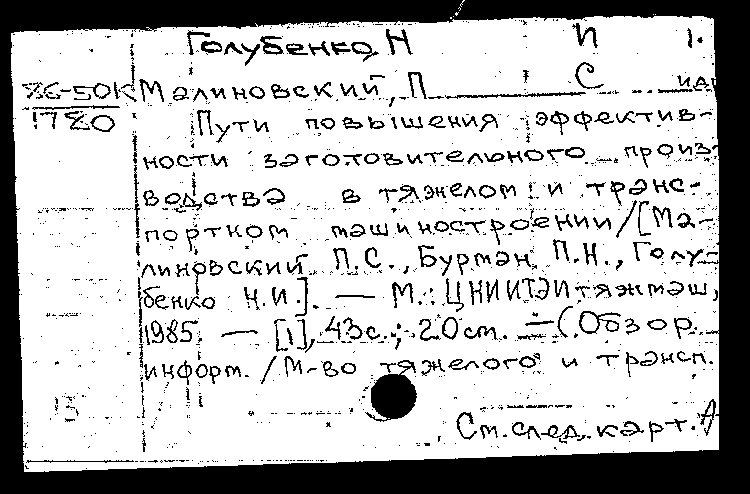 Голубенко, Н И 1.
86-50К Малиновский, П С
1780 Пути повышения эффектив-
ности заготовительного произ-
водства в тяжелом и транс-
портном машиностроении/[Ма-
линовский П.С., Бурман П.Н., Голу-
бенко Н.И.]. — М.: ЦНИИТЭИтяжмаш,
1985. — [1], 43с.; 20см. — (Обзор.
информ. / М-во тяжелого и трансп.
15
См. след. карт.